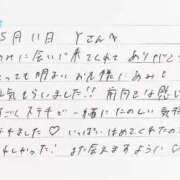 5月11日 Yさんへ
れに会いに来てくれて ありがとう
とっても明るいお兄様にあみも
元気もらいました!! 前向きな感じ
すごくステキで一緒にたのしい気持
ちました♡ いっぱいほめてくれたの
れしかった! また会えますように♡